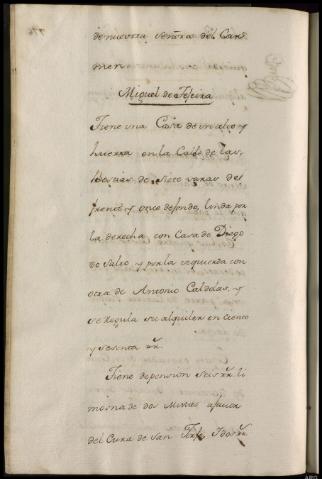 de nuestra señora del Car-
men
Miguel de Teseira
Tiene una Casa de un alto y
huerta en la Calle de las
Bestias de siete varas de
frente y once de fondo, linda por
la derecha con Casa de Diego
de Sulco y por la izquierda con
otra de Antonio Caldelas, y
se regula su alquiler en ciento
y sesenta rr.
Tiene de pension seis rr. li
mosna de dos Missas a favor
del Cura de San